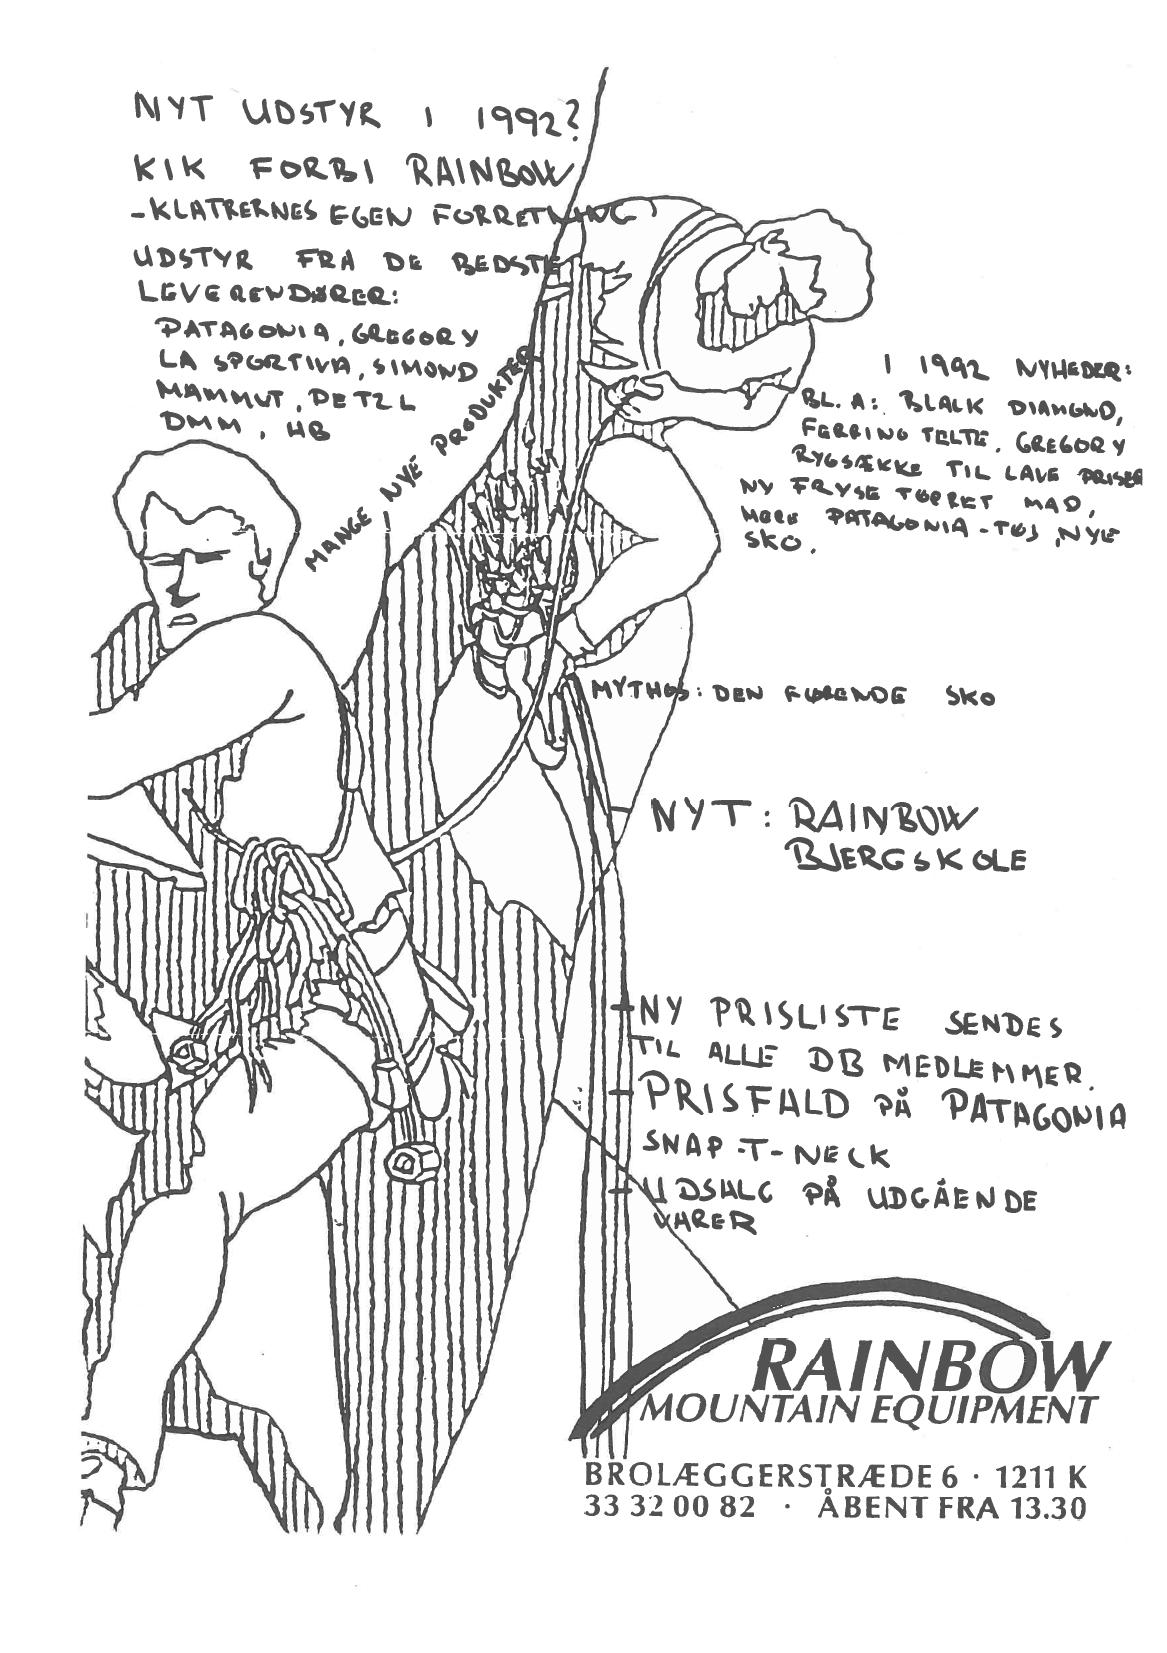 NYT UDSTYR I 1992?
KIK FORBI RAINBOW
-KLATRERNES EGEN FORRETNING
UDSTYR FRA DE BEDSTE
LEVERENDØRER:
PATAGONIA, GREGORY
LA SPORTIVA, SIMOND
MAMMUT, PETZL
DMM, HB
MANGE NYE PRODUKTER
I 1992 NYHEDER:
BL. A: BLACK DIAMOND,
FERRINO TELTE, GREGORY
RYGSÆKKE TIL LAVE PRISER
NY FRYSE TØRRET MAD,
MERE PATAGONIA-TØJ, NYE
SKO.
MYTHOS: DEN FØRENDE SKO
NYT: RAINBOW
BJERGSKOLE
NY PRISLISTE SENDES
TIL ALLE DB MEDLEMMER.
PRISFALD PÅ PATAGONIA
SNAP-T-NECK
UDSALG PÅ UDGÅENDE
VARER
RAINBOW
MOUNTAIN EQUIPMENT
BROLÆGGERSTRÆDE 6 · 1211 K
33 32 00 82 · ÅBENT FRA 13.30